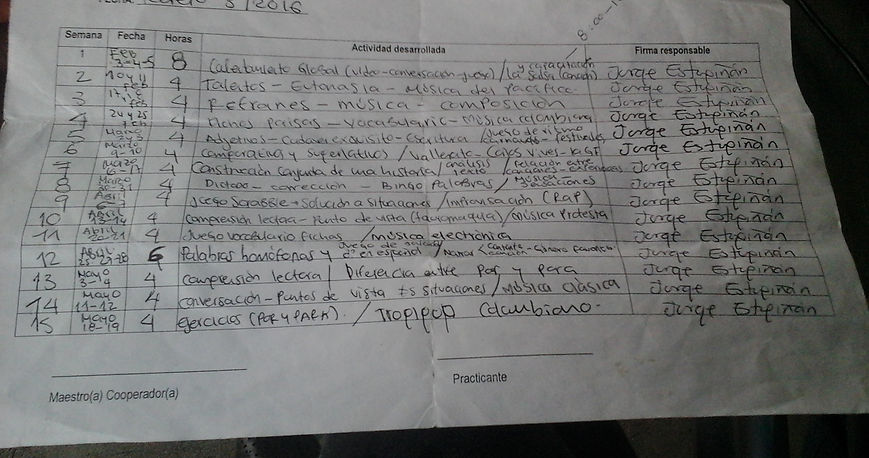 3/2016
8:00-1
Semana Fecha Horas Actividad desarrollada Firma responsable
1 Feb 3-4-5 8 Calentamiento Global (video-conversación-) / La Salsa Jorge Estupiñán
2 10 y 11 Feb 4 Talentos - Eutanasia - Música del Pacífico. Jorge Estupiñán
3 17, 18 feb 4 Refranes - música - composición Jorge Estupiñán
4 24 y 25 Feb 4 Fichas países - vocabulario - música colombiana Jorge Estupiñán
5 Marzo 2 y 3 4 Adjetivos - Cadaver exquisito - Escritura / Juego de ritmo Jorge Estupiñán
6 Marzo 9-10 4 Comparativo y Superlativo / Vallenato - Carlos Vives - Jorge Estupiñán
7 Marzo 4 Construcción conjunta de una historia / análisis texto / relación entre canciones - Jorge Estupiñán
8 Marzo 4 Dictado - corrección - Bingo Palabras / Música Jorge Estupiñán
9 Abril 4 Juego Scrabble - Solución a situaciones / improvisación (RAP) Jorge Estupiñán
10 Abril 13-14 4 Compresión lectora - Punto de vista (tauromaquia) / música Protesta Jorge Estupiñán
11 Abril 4 Juego vocabulario fichas / música electrónica Jorge Estupiñán
12 Abril 6 Palabras homófonas y Juego de en español / Narrar < - Género favorito Jorge Estupiñán
13 Mayo 4 compresión lectora / Diferencia entre Por y Para Jorge Estupiñán
14 Mayo 11-12 4 conversación - Puntos de vista ts situaciones / Música Clásica Jorge Estupiñán
15 Mayo 18-19 4 ejercicios (POR y PARA). / Tropipop Colombiano. Jorge Estupiñán
Maestro(a) Cooperador(a)
Practicante